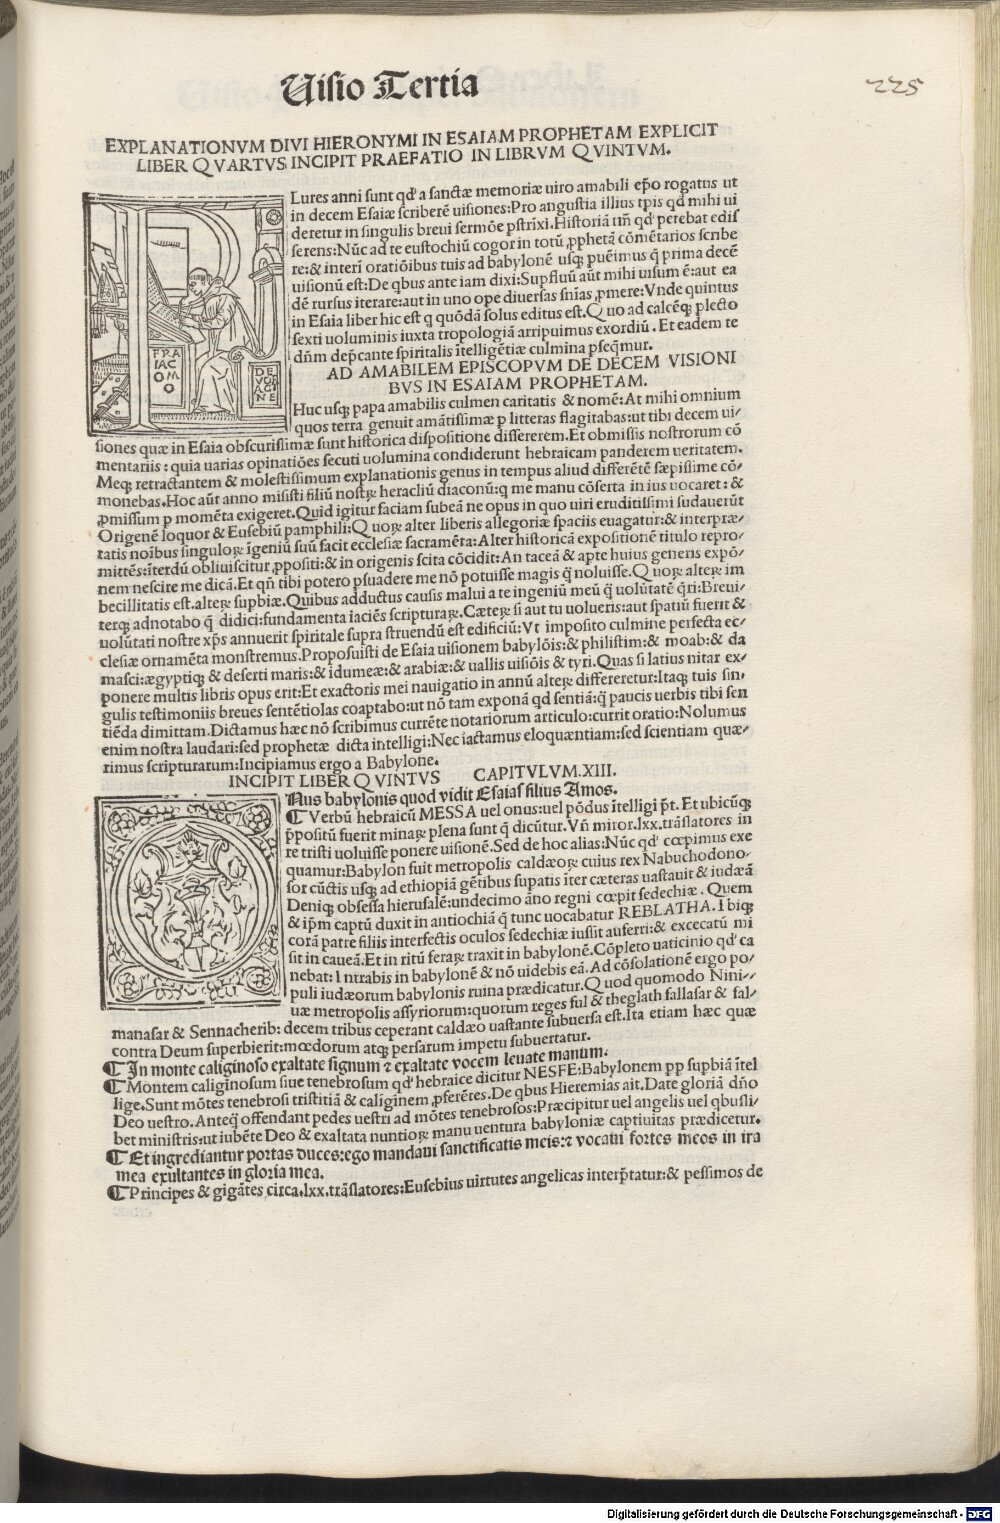 Uisio Tertia
225
EXPLANATIONVM DIVI HIERONYMI IN ESAIAM PROPHETAM EXPLICIT
LIBER QVARTVS INCIPIT PRAEFATIO IN LIBRVM QVINTVM.
Lures anni sunt qd' a sanctæ memoriæ uiro amabili ep̃o rogatus ut
in decem Esaiæ scriberē uisiones: Pro angustia illius tp̃is qd̃ mihi ui
deretur in singulis breui sermōe pstrīxi. Historiā tm̃ qd' petebat edis
serens: Nūc ad te eustochiū cogor in totū ꝓphetā cōmētarios scribe
re: & interī oratiōibus tuis ad babylonē usqꝫ puēimus q̄ prima decē
uisionū est: De qbus ante iam dixi: Supfluū aūt mihi uisum ē: aut ea
dē rursus iterare: aut in uno ope diuersas sn̄ias ꝓmere: Vnde quintus
in Esaia liber hic est q quōdā solus editus est. Quo ad calcēqꝫ plecto
sexti uoluminis iuxta tropologiā arripuimus exordiū. Et eadem te
dn̄m dep̄cante spiritalis ītelligētiæ culmina pseq̄mur.
FRA
IAC
OM
O
DE
VOR
AGI
NE
AD AMABILEM EPISCOPVM DE DECEM VISIONI
BVS IN ESAIAM PROPHETAM.
Huc usqꝫ papa amabilis culmen caritatis & nomē: At mihi omnium
quos terra genuit amātissimæ p litteras flagitabas: ut tibi decem ui/
siones quæ in Esaia obscurissimæ sunt historica dispositione dissererem. Et obmissis nostrorum cō
mentariis: quia uarias opinatiōes secuti uolumina condiderunt hebraicam panderem ueritatem.
Meqꝫ retractantem & molestissimum explanationis genus in tempus aliud differētē sæpissime cō/
monebas. Hoc aūt anno misisti filiū nostrꝝ heracliū diaconū: q me manu cōserta in ius uocaret: &
ꝓmissum p momēta exigeret. Quid igitur faciam subeā ne opus in quo uiri eruditissimi sudauerūt
Origenē loquor & Eusebiū pamphili: Quorꝝ alter liberis allegoriæ spaciis euagatur: & interpræ/
tatis noībus singulorꝝ īgeniū suū facit ecclesiæ sacramēta: Alter historicā expositionē titulo repro/
mittēs: īterdū obliuiscitur ꝓpositi: & in origenis scita cōcidit: An taceā & apte huius generis expō/
nem nescire me dicā. Et qn̄ tibi potero psuadere me nō potuisse magis q̄ noluisse. Quorꝝ alterꝝ im
becillitatis est. alterꝝ supbiæ. Quibus adductus causis malui a te ingeniū meū q̄ uolūtatē q̄ri: Breui/
terqꝫ adnotabo q̄ didici: fundamenta iaciēs scripturaꝝ. Cæterꝝ si aut tu uolueris: aut spatiū fuerit &
uolūtati nostre xp̄s annuerit spiritale supra struendū est edificiū: Vt imposito culmine perfecta ec/
clesiæ ornamēta monstremus. Proposuisti de Esaia uisionem babylōis: & philistim: & moab: & da
masci: ægyptiqꝫ & deserti maris: & idumeæ: & arabiæ: & uallis uisiōis & tyri. Quas si latius nitar ex/
ponere multis libris opus erit: Et exactoris mei nauigatio in annū alterꝝ differeretur: Itaqꝫ tuis sin/
gulis testimoniis breues sentētiolas coaptabo: ut nō tam exponā qd sentiā: q̄ paucis uerbis tibi sen
tiēda dimittam. Dictamus hæc nō scribimus currēte notariorum articulo: currit oratio: Nolumus
enim nostra laudari: sed prophetæ dicta intelligi: Nec iactamus eloquæntiam: sed scientiam quæ/
rimus scripturarum: Incipiamus ergo a Babylone.
INCIPIT LIBER QVINTVS CAPITVLVM.XIII.
Nus babylonis quod vidit Esaias filius Amos.
¶ Verbū hebraicū MESSA uel onus: uel pōdus ītelligi p̄t. Et ubicūqꝫ
p̄positū fuerit minaꝝ plena sunt q̄ dicūtur. Vn̄ miror .lxx. trāslatores in
re tristi uoluisse ponere uisionē. Sed de hoc alias: Nūc qd' cœpimus exe
quamur: Babylon fuit metropolis caldæoꝝ cuius rex Nabuchodono/
sor cūctis usqꝫ ad ethiopiā gētibus supatis īter cæteras uastauit & iudæā
Deniqꝫ obsessa hierusalē: undecimo āno regni cœpit sedechiæ. Quem
& ip̄m captū duxit in antiochiā q̄ tunc uocabatur REBLATHA. Ibiqꝫ
corā patre filiis interfectis oculos sedechiæ iussit auferri: & excecatū mi
sit in caueā. Et in ritū feraꝝ traxit in babylonē. Cōpleto uaticinio qd' ca
nebat: Intrabis in babylonē & nō uidebis eā. Ad cōsolationē ergo po/
puli iudæorum babylonis ruina prædicatur. Quod quomodo Nini/
uæ metropolis assyriorum: quorum reges ful & theglath fallasar & sal/
manasar & Sennacherib: decem tribus ceperant caldæo uastante subuersa est. Ita etiam hæc quæ
contra Deum superbierit: mœdorum atqꝫ persarum impetu subuertatur.
¶ In monte caliginoso exaltate signum ⁊ exaltate vocem leuate manum.
¶ Montem caliginosum siue tenebrosum qd' hebraice dicitur NESFE: Babylonem pp supbiā ītel
lige. Sunt mōtes tenebrosi tristitiā & caliginem ꝓferētes. De qbus Hieremias ait. Date gloriā dn̄o
Deo uestro. Anteq̄ offendant pedes uestri ad mōtes tenebrosos: Præcipitur uel angelis uel qbusli/
bet ministris: ut iubēte Deo & exaltata nuntioꝝ manu uentura babyloniæ captiuitas prædicetur.
¶ Et ingrediantur portas duces: ego mandaui sanctificatis meis: ⁊ vocaui fortes meos in ira
mea exultantes in gloria mea.
¶ Principes & gigātes circa .lxx. trāslatores: Eusebius uirtutes angelicas interp̄tatur: & pessimos de
Digitalisierung gefördert durch die Deutsche Forschungsgemeinschaft - DFG